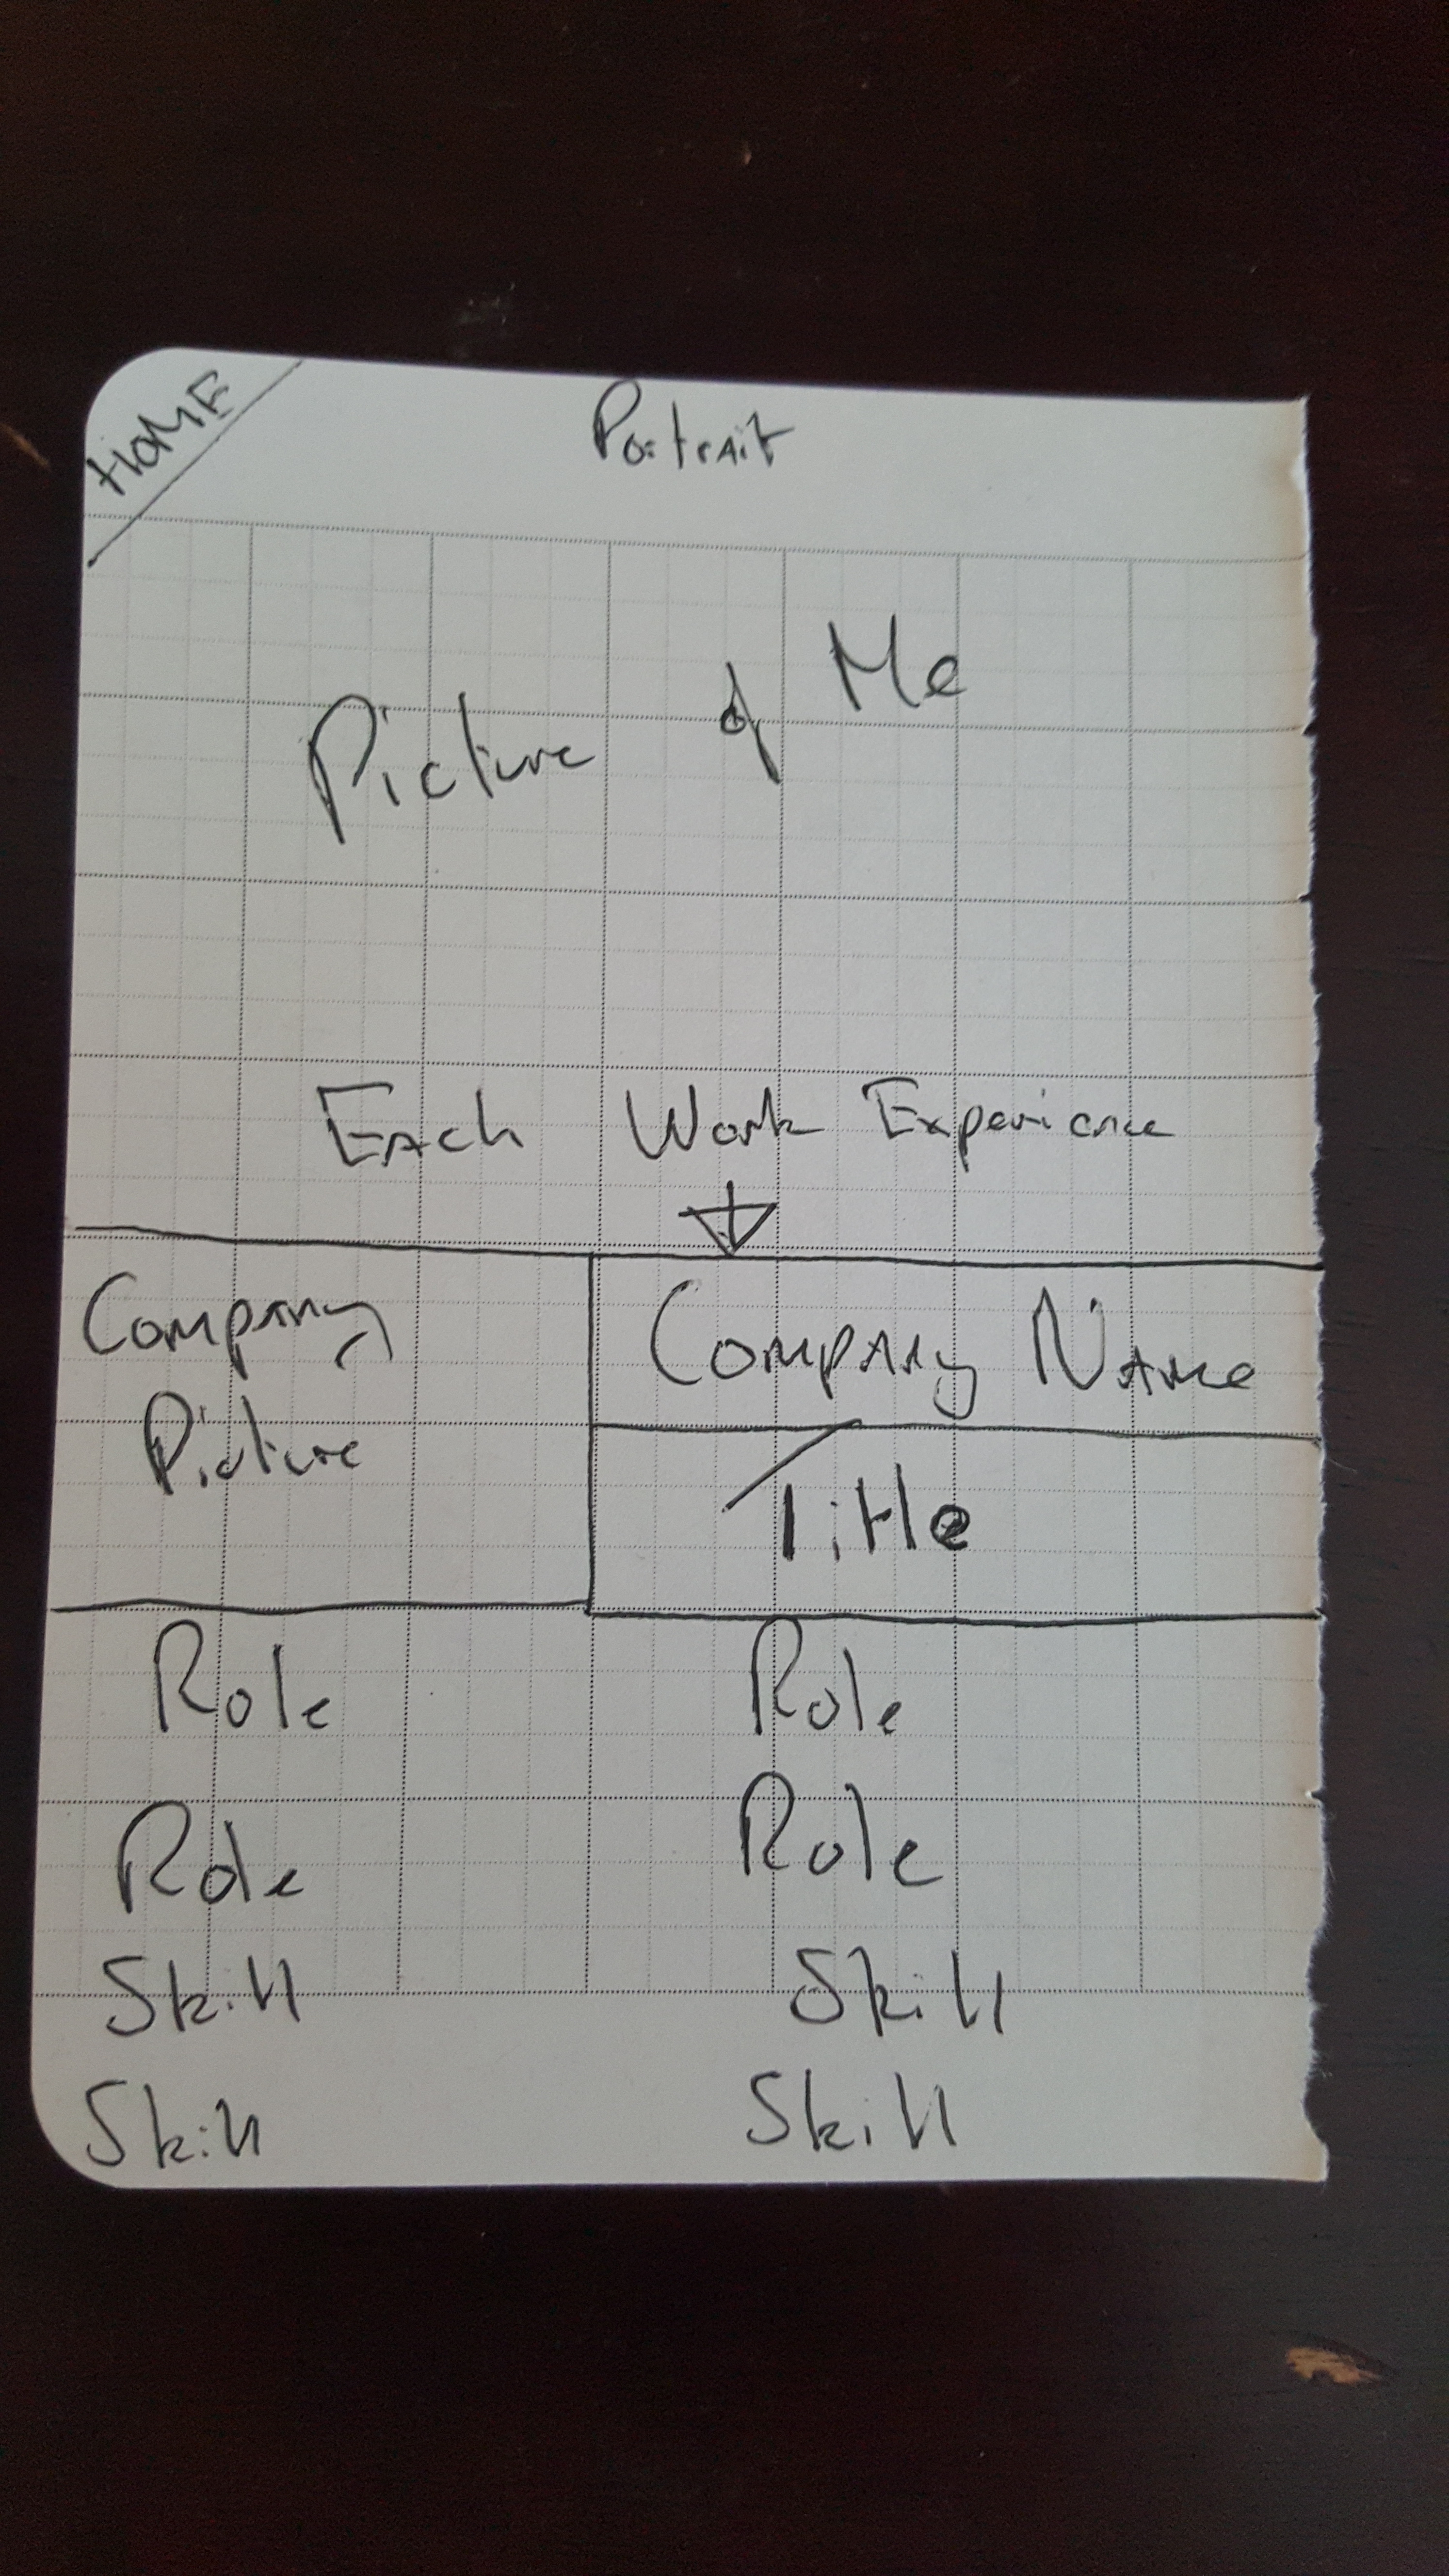 HOME
Portrait
Picture of Me
Each Work Experience
Company
Picture
Company Name
Title
Role Role
Role Role
Skill Skill
Skill Skill